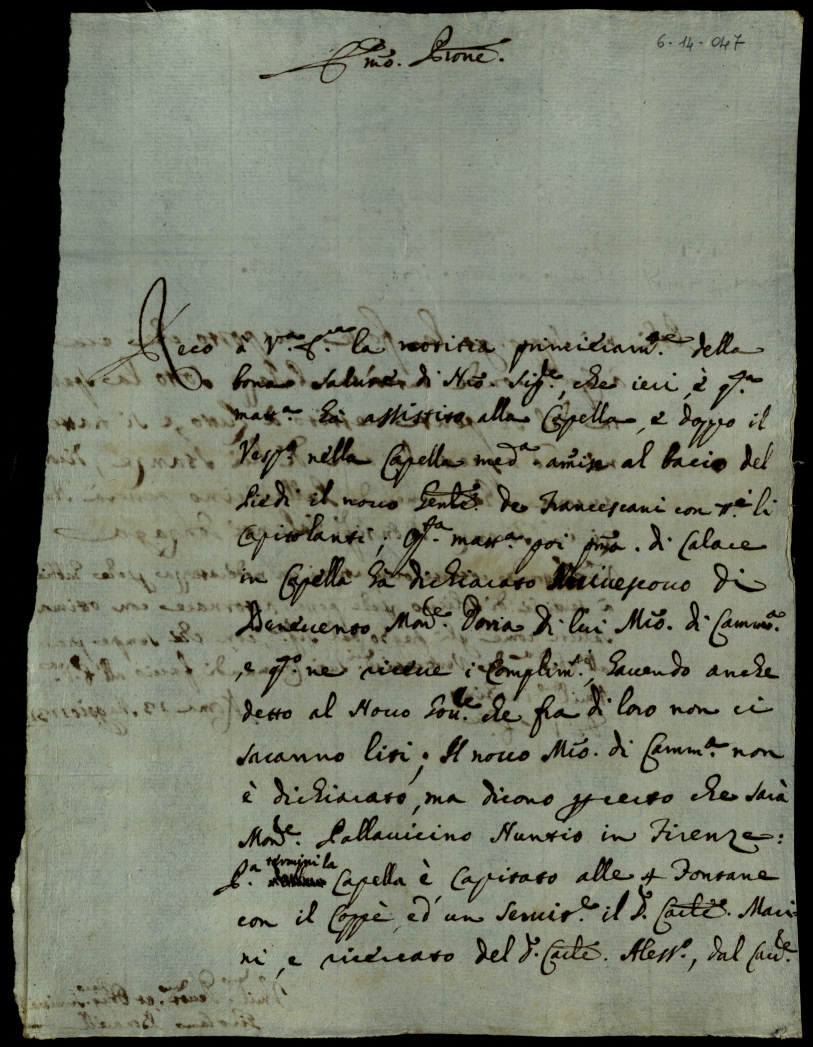 6-14-047
Emo. Prone.
Reco à V.ra E.za la notitia primieram.te della
bona salute di Nro. Sig.re, che ieri, è q.ta
matt.a hà assistito alla Capella, e doppo il
Vesp.o nella Capella med.a amise al bacio del
Piedi il novo Genle de Francescani con i li
Capitolanti; Q.ta matt.a poi pma. di Calare
in Capella hà dichiarato Arcivescovo di
Benevento Mon.re Doria di lui Mro. di Camm.a
, e q.to ne riceve i Complim.ti, havendo anche
detto al Novo Gov.re che fra di loro non ci
saranno liti; Il novo Mro. di Camm.a non
è dichiarato, ma dicono p certo che sarà
Mon.re Pallavicino Nuntio in Firenze:
P.a termini la Capella è Capitato alle 4 Fontane
con il Coppè, ed' un Servit.e il S.r Carle. Mari-
ni, e ricercato del S.r Carle. Aless.o, dal Cau.re